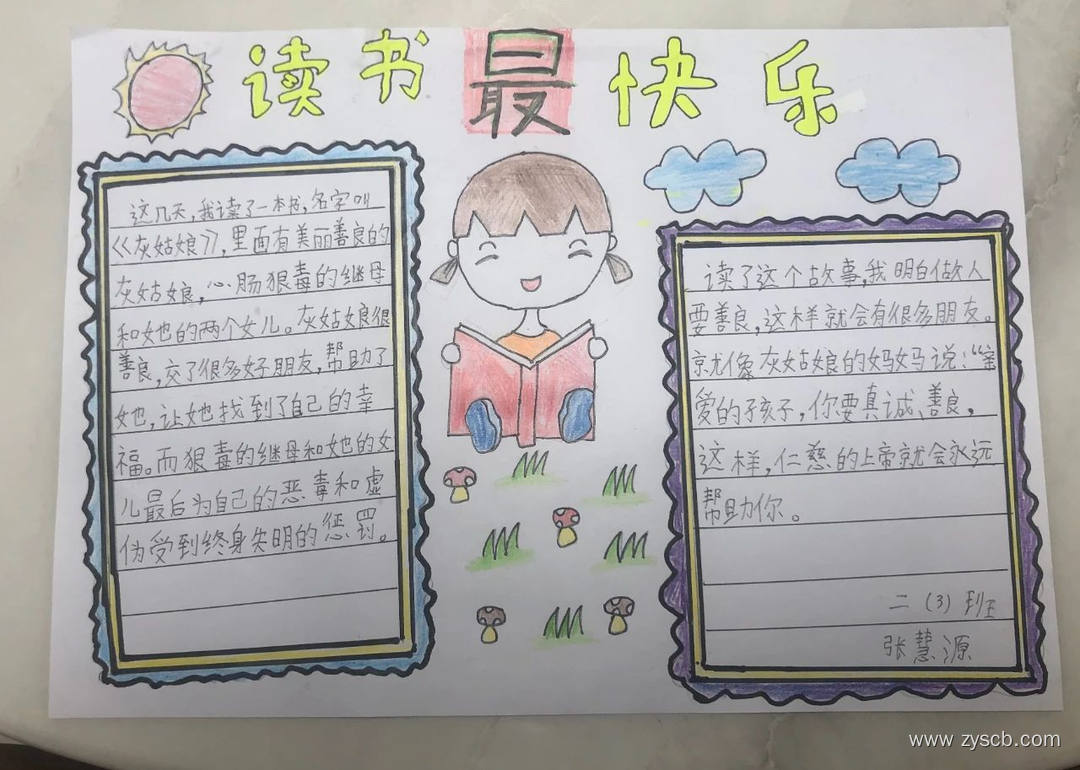 读书最快乐
这几天,我读了一本书,名字叫
《灰姑娘》,里面有美丽善良的
灰姑娘,心肠狠毒的继母
和她的两个女儿。灰姑娘很
善良,交了很多好朋友,帮助了
她,让她找到了自己的幸
福。而狠毒的继母和她的女
儿最后为自己的恶毒和虚
伪受到终身失明的惩罚。
读了这个故事,我明白做人
要善良,这样就会有很多朋友。
就像灰姑娘的妈妈说:“亲
爱的孩子,你要真诚、善良,
这样,仁慈的上帝就会永远
帮助你。
二(3)班
张慧源
www.zyscb.com